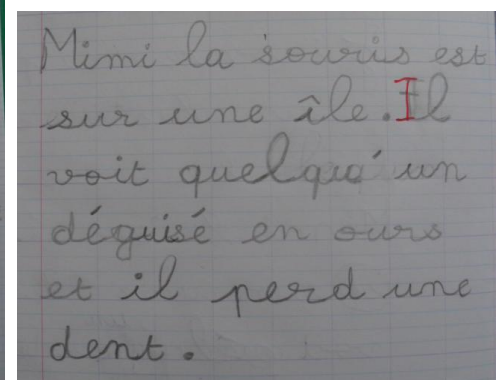 Mimi la souris est
sur une île. Il
voit quelqu'un
déguisé en ours
et il perd une
dent.